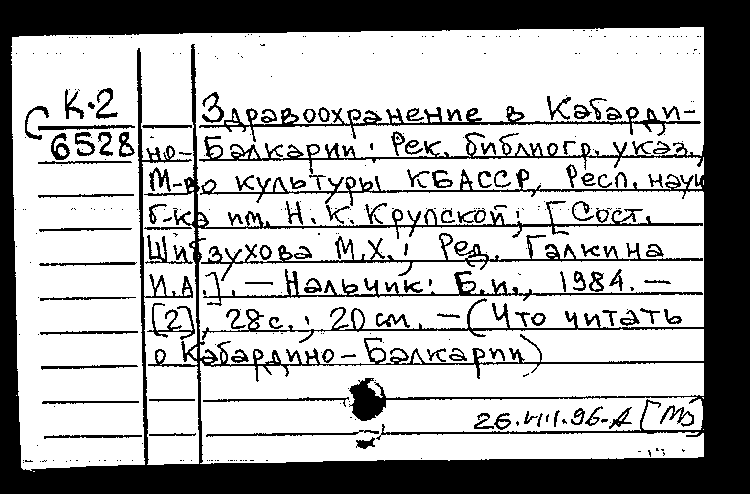 К-2
6528
Здравоохранение в Кабарди-
но-Балкарии: Рек. библиогр. указ.,
М-во культуры КБАССР, Респ. науч
б-ка им. Н. К. Крупской; [Сост.
Шибзухова М.Х.; Ред. Галкина
И.А.]. — Нальчик: Б.и., 1984. —
[2], 28 с.; 20 см. — (Что читать
о Кабардино-Балкарии)
26.VIII.96-А